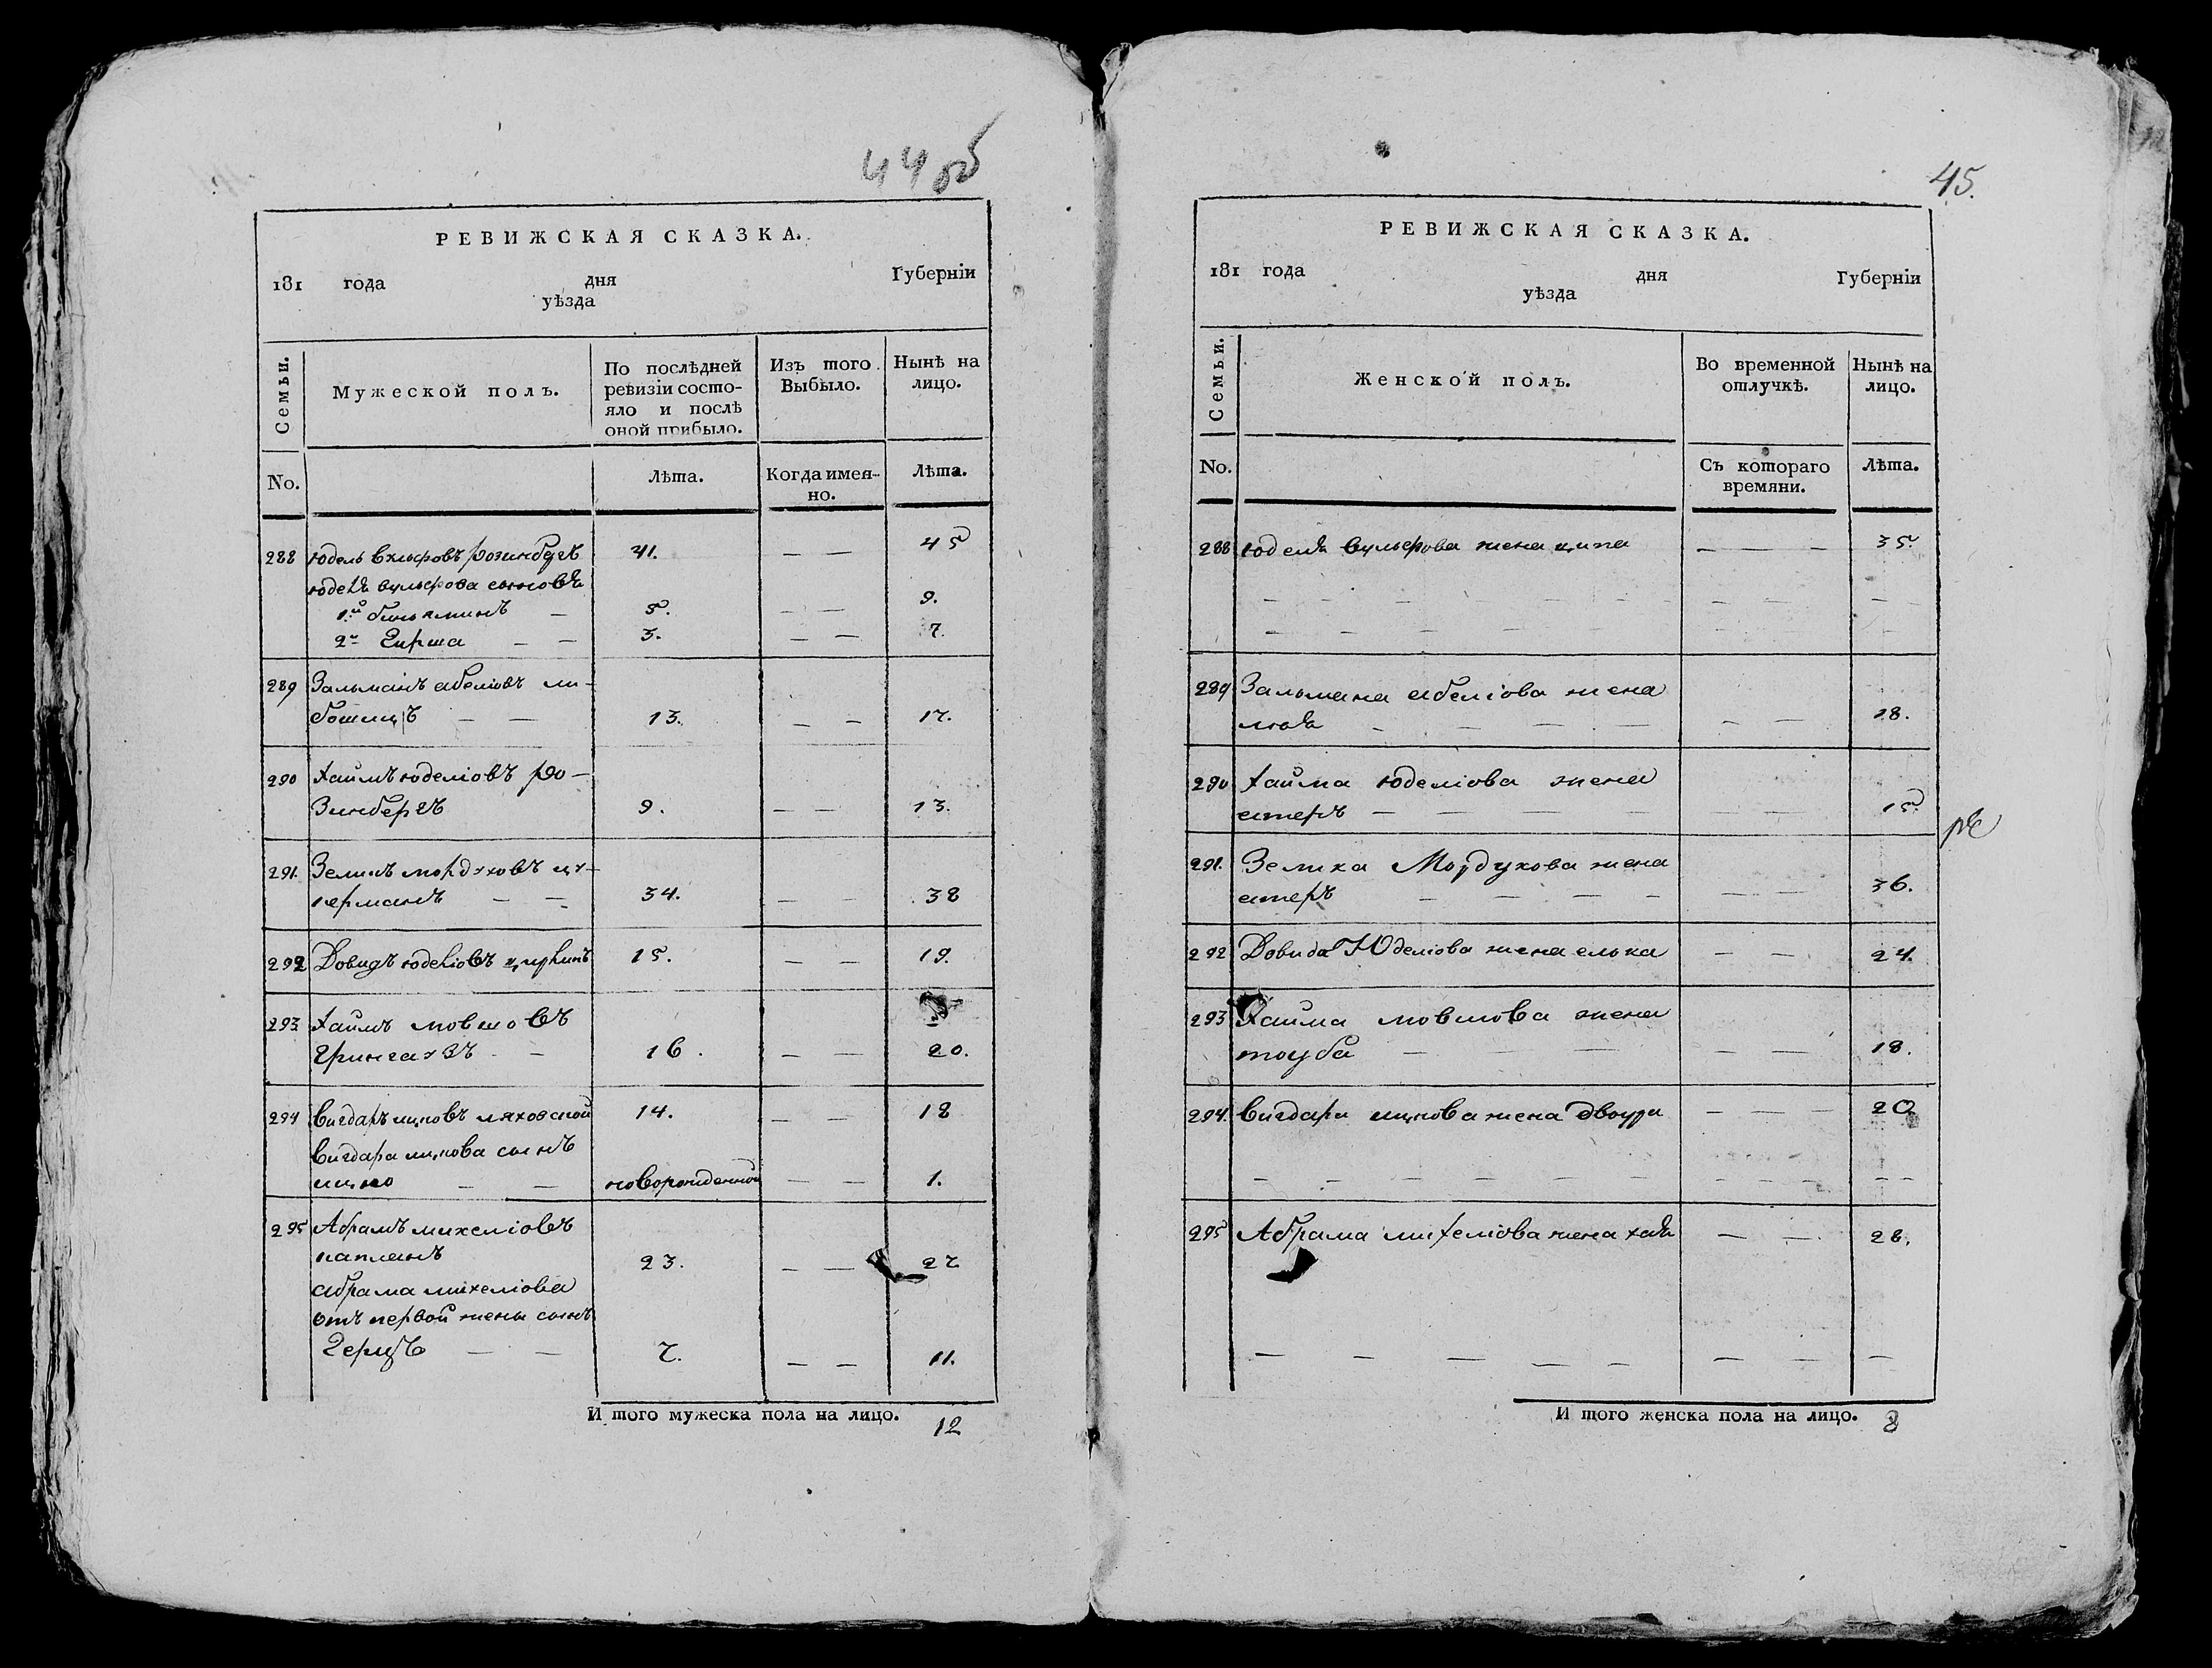 44 об
РЕВИЖСКАЯ СКАЗКА.
181 года дня Губерніи
уѣзда
Семьи.
Мужеской полъ.
По послѣдней ревизіи состояло и послѣ оной прибыло.
Изъ того Выбыло.
Нынѣ на лицо.
No.
Лѣта.
Когда именно.
Лѣта.
288 Юдель Вульфовъ 41. — — 45
Юделя вульфова сыновья
1й биньяминъ — 5. — — 9.
2й Гирша — — 3. — — 7.
289 Зальманъ абеліовъ ли-
бошицъ — — 13. — — 17.
290 Хаимъ юделіовъ ро-
зинбергъ 9. — — 13.
291. Зеликъ мордуховъ цу-
керманъ — — 34. — — 38
292 Довидъ юделіовъ цирлинъ 15. — — 19.
293 Хаимъ мовшовъ
грингаузъ — 16. — — 20.
294 Вигдаръ ицковъ ляховской 14. — — 18
Вигдара ицкова сынъ
ицко — — новорожденной — — 1.
295 Абрамъ михеліовъ
капланъ 23. — — 27
абрама михеліова
отъ первой жены сынъ
Герцъ — — 7. — — 11.
И того мужеска пола на лицо. 12
45.
РЕВИЖСКАЯ СКАЗКА.
181 года дня Губерніи
уѣзда
Семьи.
Женской полъ.
Во временной отлучкѣ.
Нынѣ на лицо.
No.
Съ котораго времяни.
Лѣта.
288 Юделя вульфова жена ципа — — — 35.
289 Зальмана абеліова жена
— — — — — — 18.
290 Хаима юделіова жена
естеръ — — — — — — 15.
291. Зелика Мордухова жена
естеръ — — — — — — 36.
292 Довида Юделіова жена елька — — 24.
293 Хаима мовшова жена
тоуба — — — — — 18.
294. Вигдара ицкова жена двоура — — — 20
295 Абрама михеліова жена хая — — 28.
И того женска пола на лицо. 8